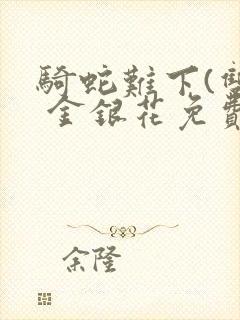 騎蛇難下(雙
金銀花免費
余隆